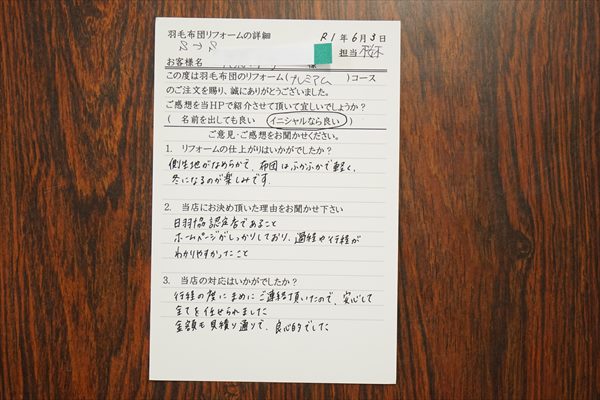 羽毛布団リフォームの詳細 R1年6月3日
S→S 担当 桜木
お客様名 様
この度は羽毛布団のリフォーム(プレミアム)コース
のご注文を賜り、誠にありがとうございました。
ご感想を当HPで紹介させて頂いて宜しいでしょうか?
( 名前を出しても良い イニシャルなら良い )
ご意見・ご感想をお聞かせください。
1. リフォームの仕上がりはいかがでしたか?
側生地がなめらかで、布団はふかふかで軽く、
冬になるのが楽しみです。
2. 当店にお決め頂いた理由をお聞かせ下さい
日羽協認定店であること
ホームページがしっかりしており、過程や行程が
わかりやすかったこと
3. 当店の対応はいかがでしたか?
行程の度にまめにご連絡頂いたので、安心して
全てを任せられました
金額も見積り通りで、良心的でした